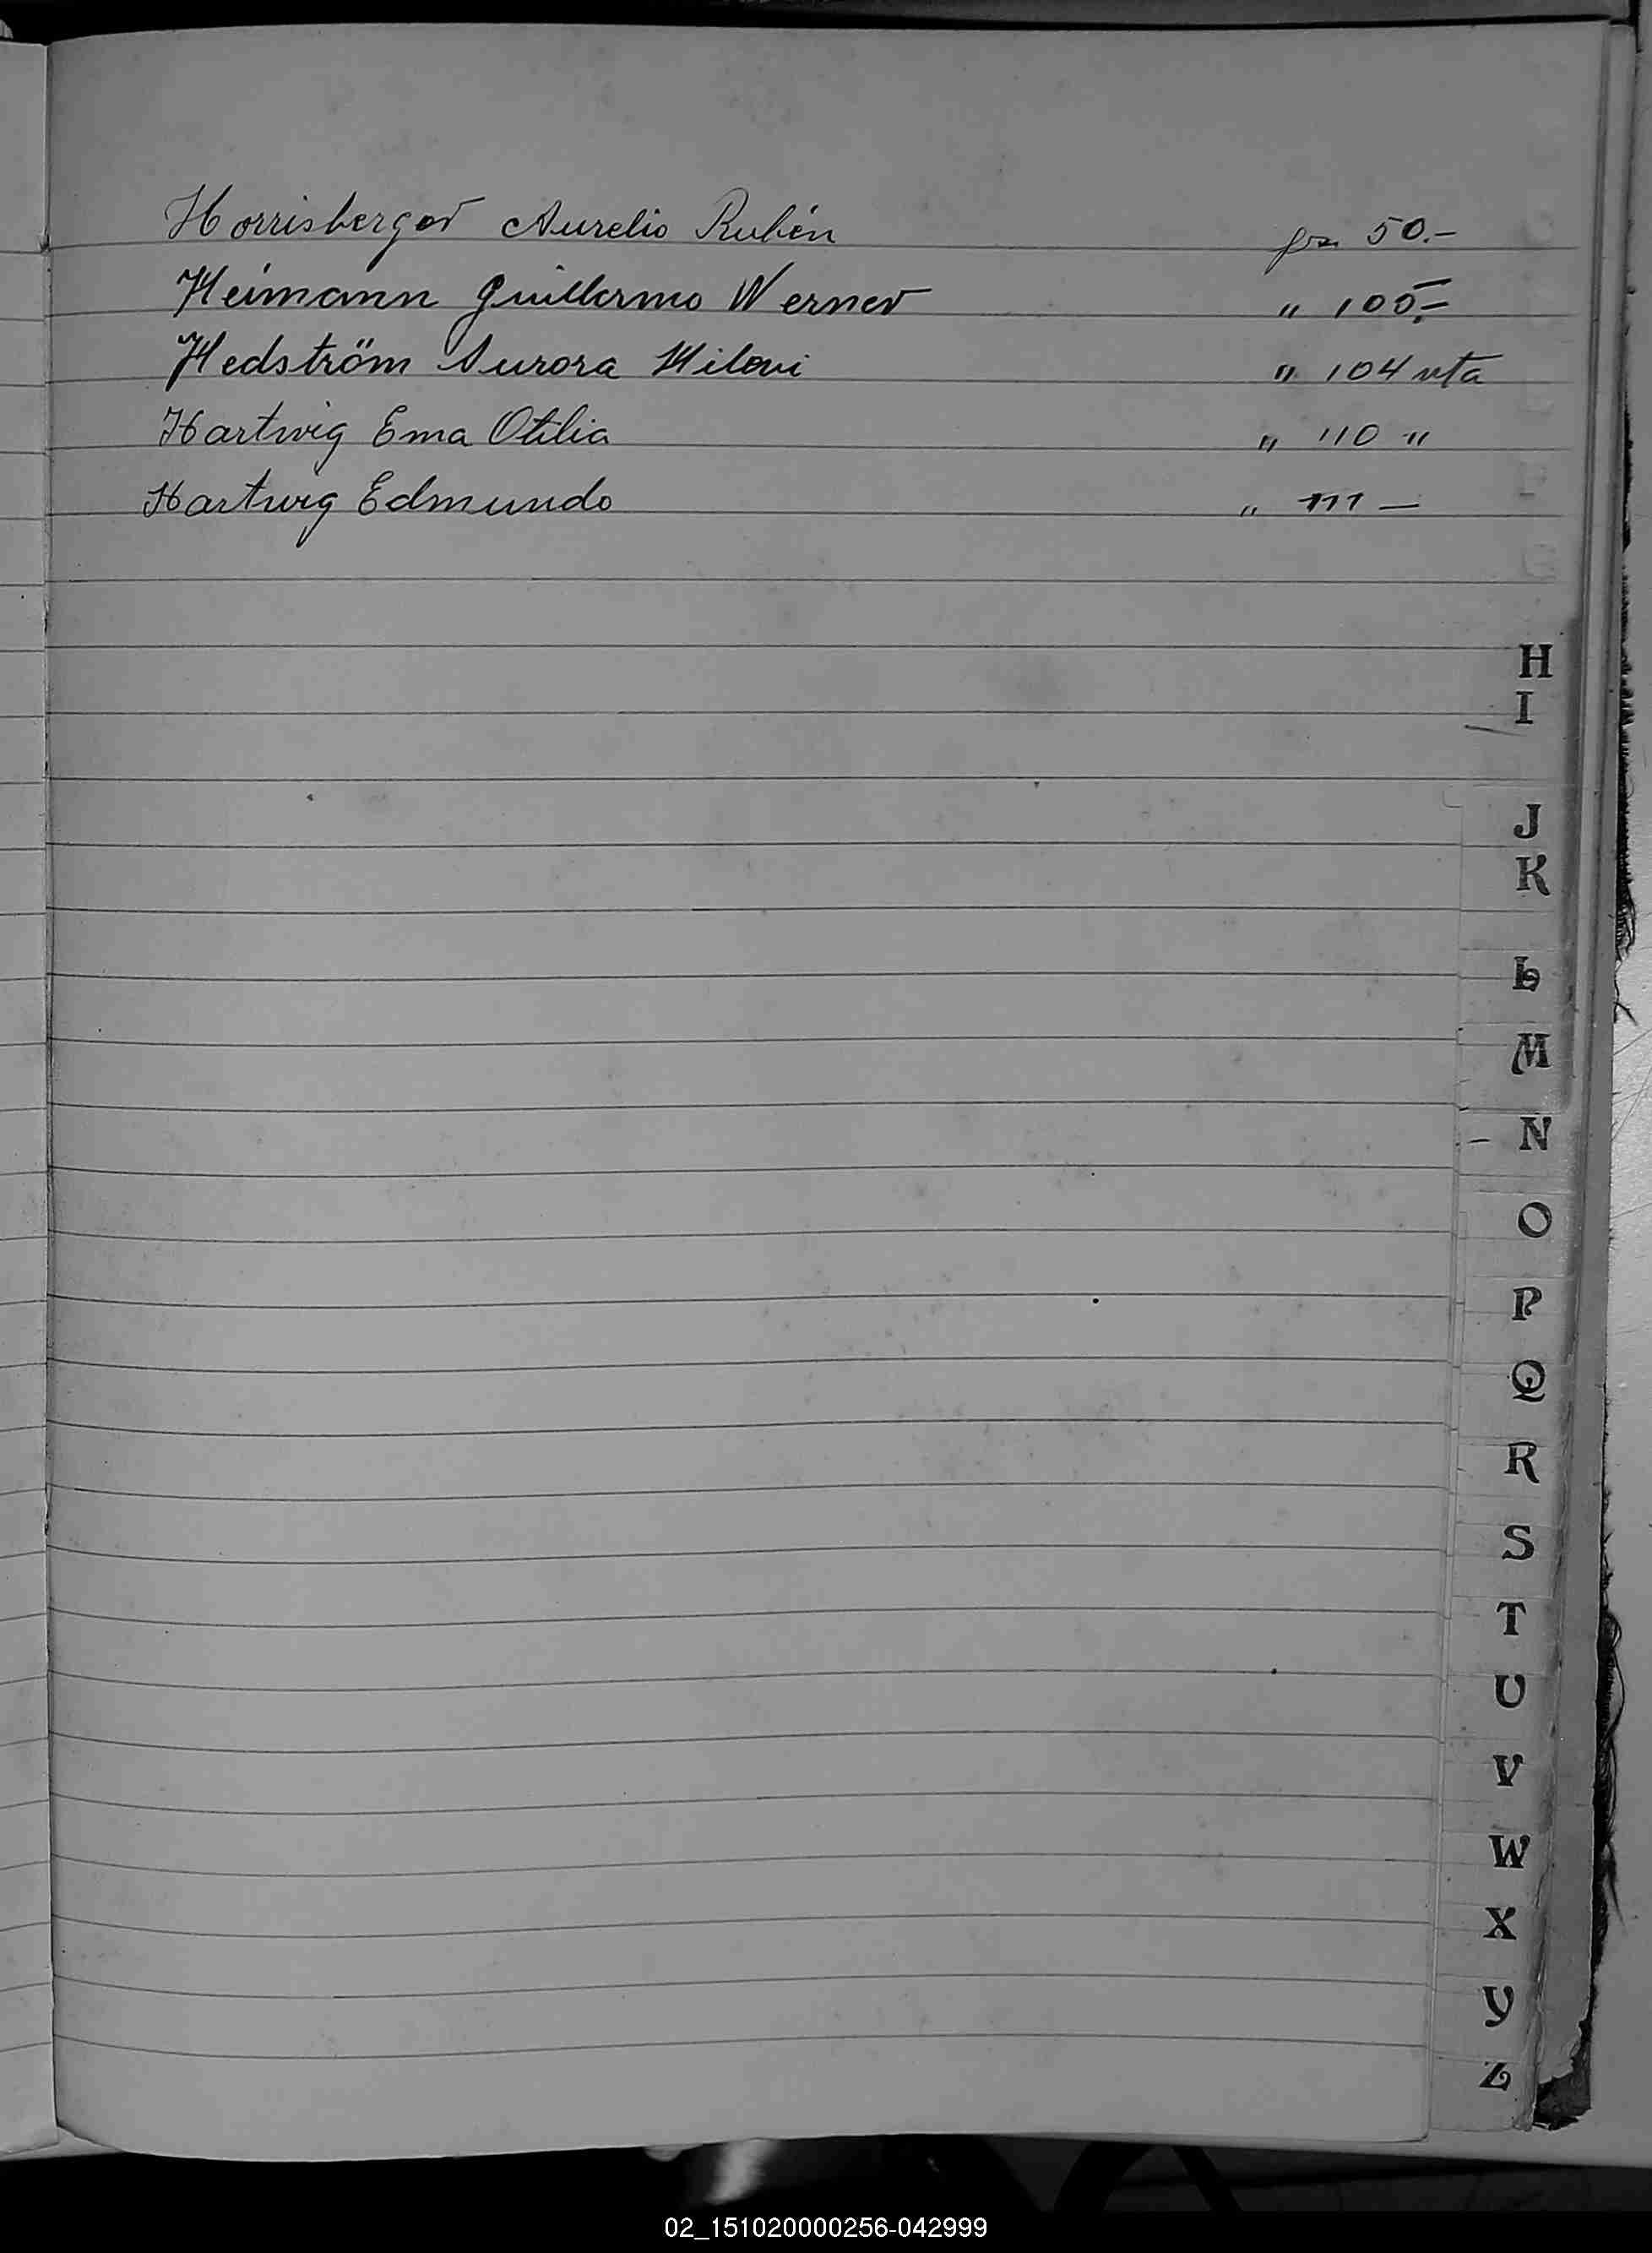 Horrisberger Aurelio Rubén 50.-
Heimann Guillermo Werner " 105.-
Hedström Aurora " 104 vta
Hartwig Ema Otilia " 110 "
Hartwig Edmundo " 111 —
H
I
J
K
L
M
N
O
P
Q
R
S
T
U
V
W
X
Y
Z
02_151020000256-042999